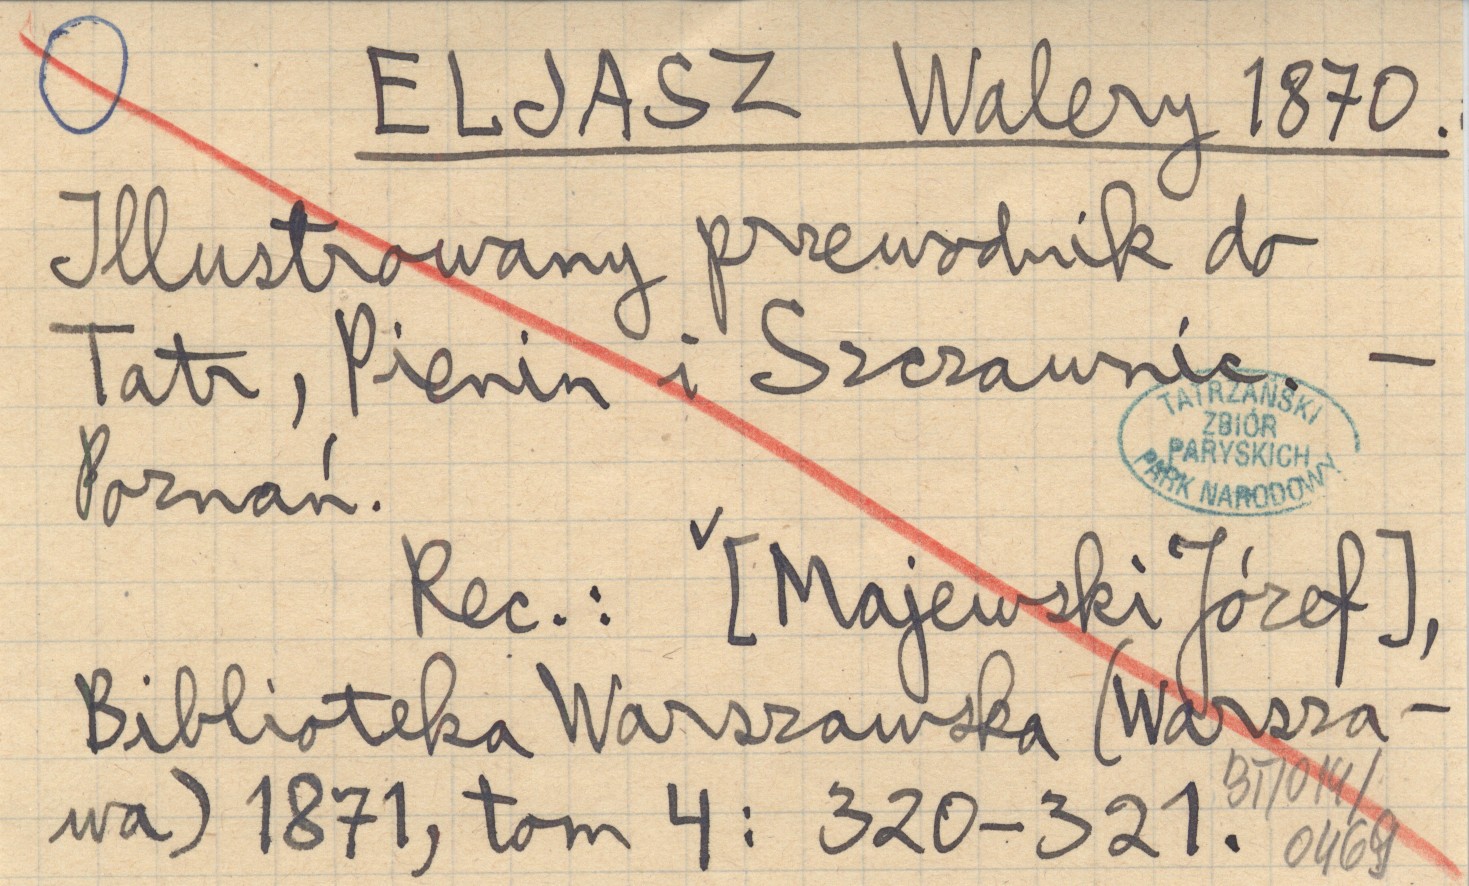 ELJASZ Walery 1870.
Illustrowany przewodnik do
Tatr, Pienin i Szczawnic. —
Poznań.
Rec.: ᵛ[Majewski Józef],
Biblioteka Warszawska (Warsza-
wa) 1871, tom 4: 320-321.
TATRZAŃSKI
ZBIÓR
PARYSKICH
PARK NARODOWY
BT/014/
0469